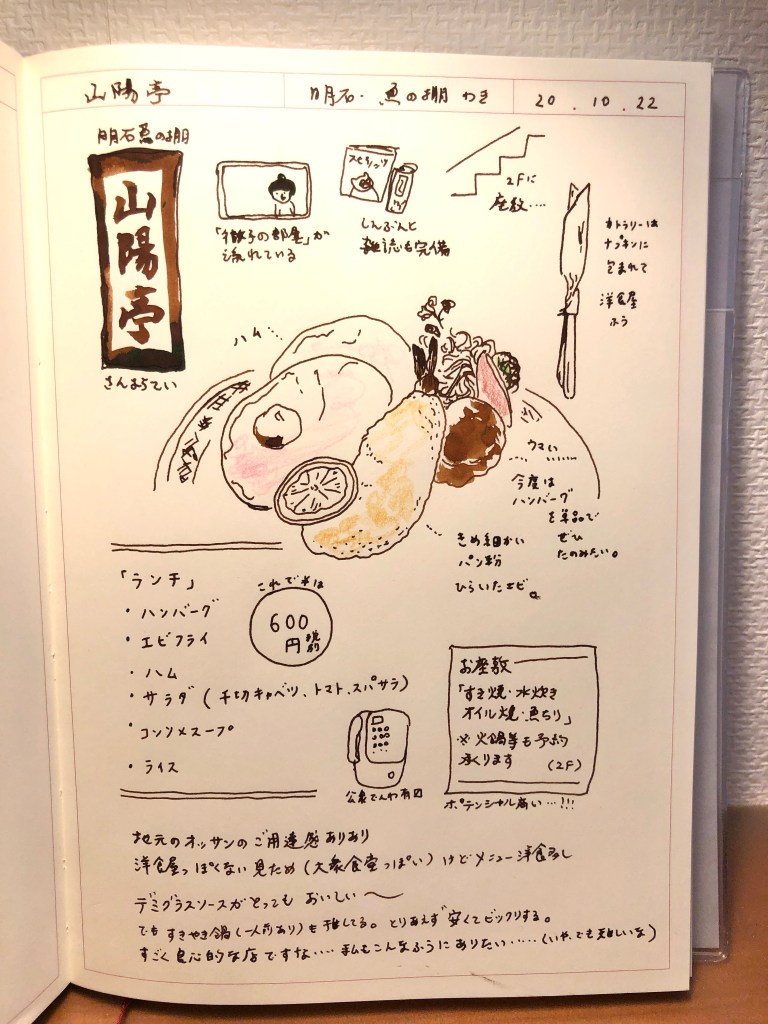 山陽亭
明石・魚の棚 わき
20.10.22
明石魚の棚
山陽亭
さんようてい
「徹子の部屋」が
流れている
スピリッツ
しんぶんと
雑誌も完備
2Fに
座敷‥‥
カトラリーは
ナプキンに
包まれて
洋食屋
ふう
ハム
ウマい
今度は
ハンバーグ
を単品で
ぜひ
たのみたい。
きめ細かい
パン粉
ひらいたエビ。
「ランチ」
・ハンバーグ
・エビフライ
・ハム
・サラダ(千切キャベツ、トマト、スパサラ)
・コンソメスープ
・ライス
これで
600
円
税別
公衆でんわ有
お座敷
「すき焼・水炊き
オイル焼・魚ちり」
※火鍋等も予約
承ります (2F)
ポテンシャル高い…!!!
地元のオッサンのご用達感ありあり
洋食屋っぽくない見ため(大衆食堂っぽい)けどメニュー洋食多し
デミグラスソースがとっても おいしい〜
でも すきやき鍋(一人前あり)も推してる。とりあえず安くてビックリする。
すごく良心的な店ですな‥‥私もこんなふうにありたい‥‥(いや、でも難しいな)